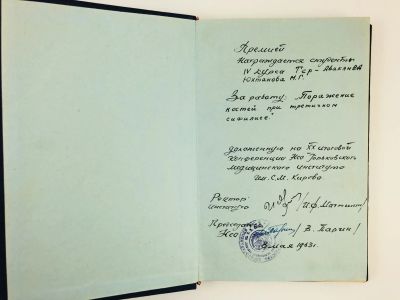 Премией
Награждается студенты
IV курса Тер-Авакян В.А
Юхтанова Н.Г.
За работу: "Поражение
костей при третичном
сифилисе"
доложенную на XX итоговой
конференции НСО Горьковского
медицинского института
Им. С.М. Кирова
Ректор
института /И.Ф. Матюшин/
Председатель
НСО / В. Паргин/
мая 1963г.